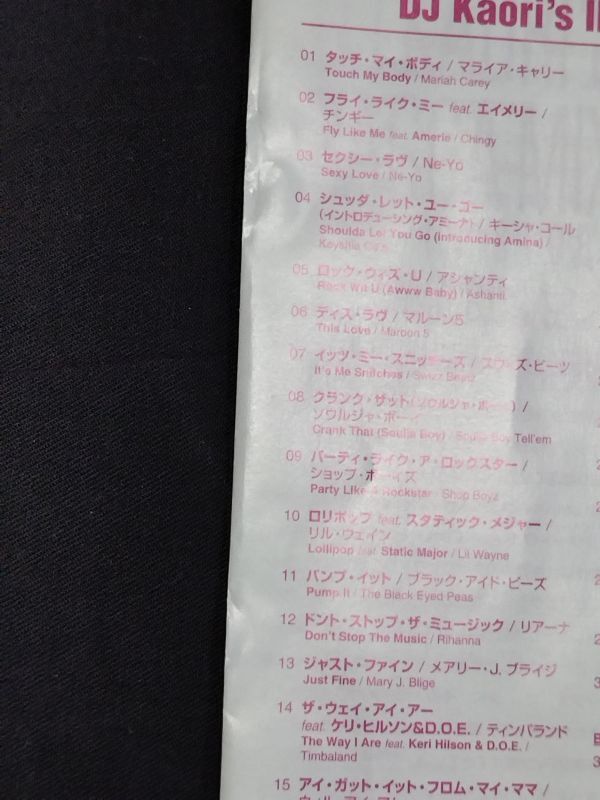 DJ Kaori's
01 タッチ・マイ・ボディ / マライア・キャリー
Touch My Body / Mariah Carey
02 フライ・ライク・ミー feat. エイメリー /
チンギー
Fly Like Me feat. Amerie / Chingy
03 セクシー・ラヴ / Ne-Yo
Sexy Love / Ne-Yo
04 シュッダ・レット・ユー・ゴー
(イントロデューシング・アミーナ) / キーシャ・コール
Shoulda Let You Go (introducing Amina) /
Keyshia Cole
05 ロック・ウィズ・U / アシャンティ
Rock Wit U (Awww Baby) / Ashanti
06 ディス・ラヴ / マルーン5
This Love / Maroon 5
07 イッツ・ミー・スニッチーズ / スウィズ・ビーツ
It's Me Snitches / Swizz Beatz
08 クランク・ザット (ソウルジャ・ボーイ) /
ソウルジャ・ボーイ
Crank That (Soulja Boy) / Soulja Boy Tell'em
09 パーティ・ライク・ア・ロックスター /
ショップ・ボーイズ
Party Like A Rockstar / Shop Boyz
10 ロリポップ feat. スタティック・メジャー /
リル・ウェイン
Lollipop feat. Static Major / Lil Wayne
11 パンプ・イット / ブラック・アイド・ピーズ
Pump It / The Black Eyed Peas
12 ドント・ストップ・ザ・ミュージック / リアーナ
Don't Stop The Music / Rihanna
13 ジャスト・ファイン / メアリー・J. ブライジ
Just Fine / Mary J. Blige
14 ザ・ウェイ・アイ・アー
feat. ケリ・ヒルソン&D.O.E. / ティンバランド
The Way I Are feat. Keri Hilson & D.O.E. /
Timbaland
15 アイ・ガット・イット・フロム・マイ・ママ /